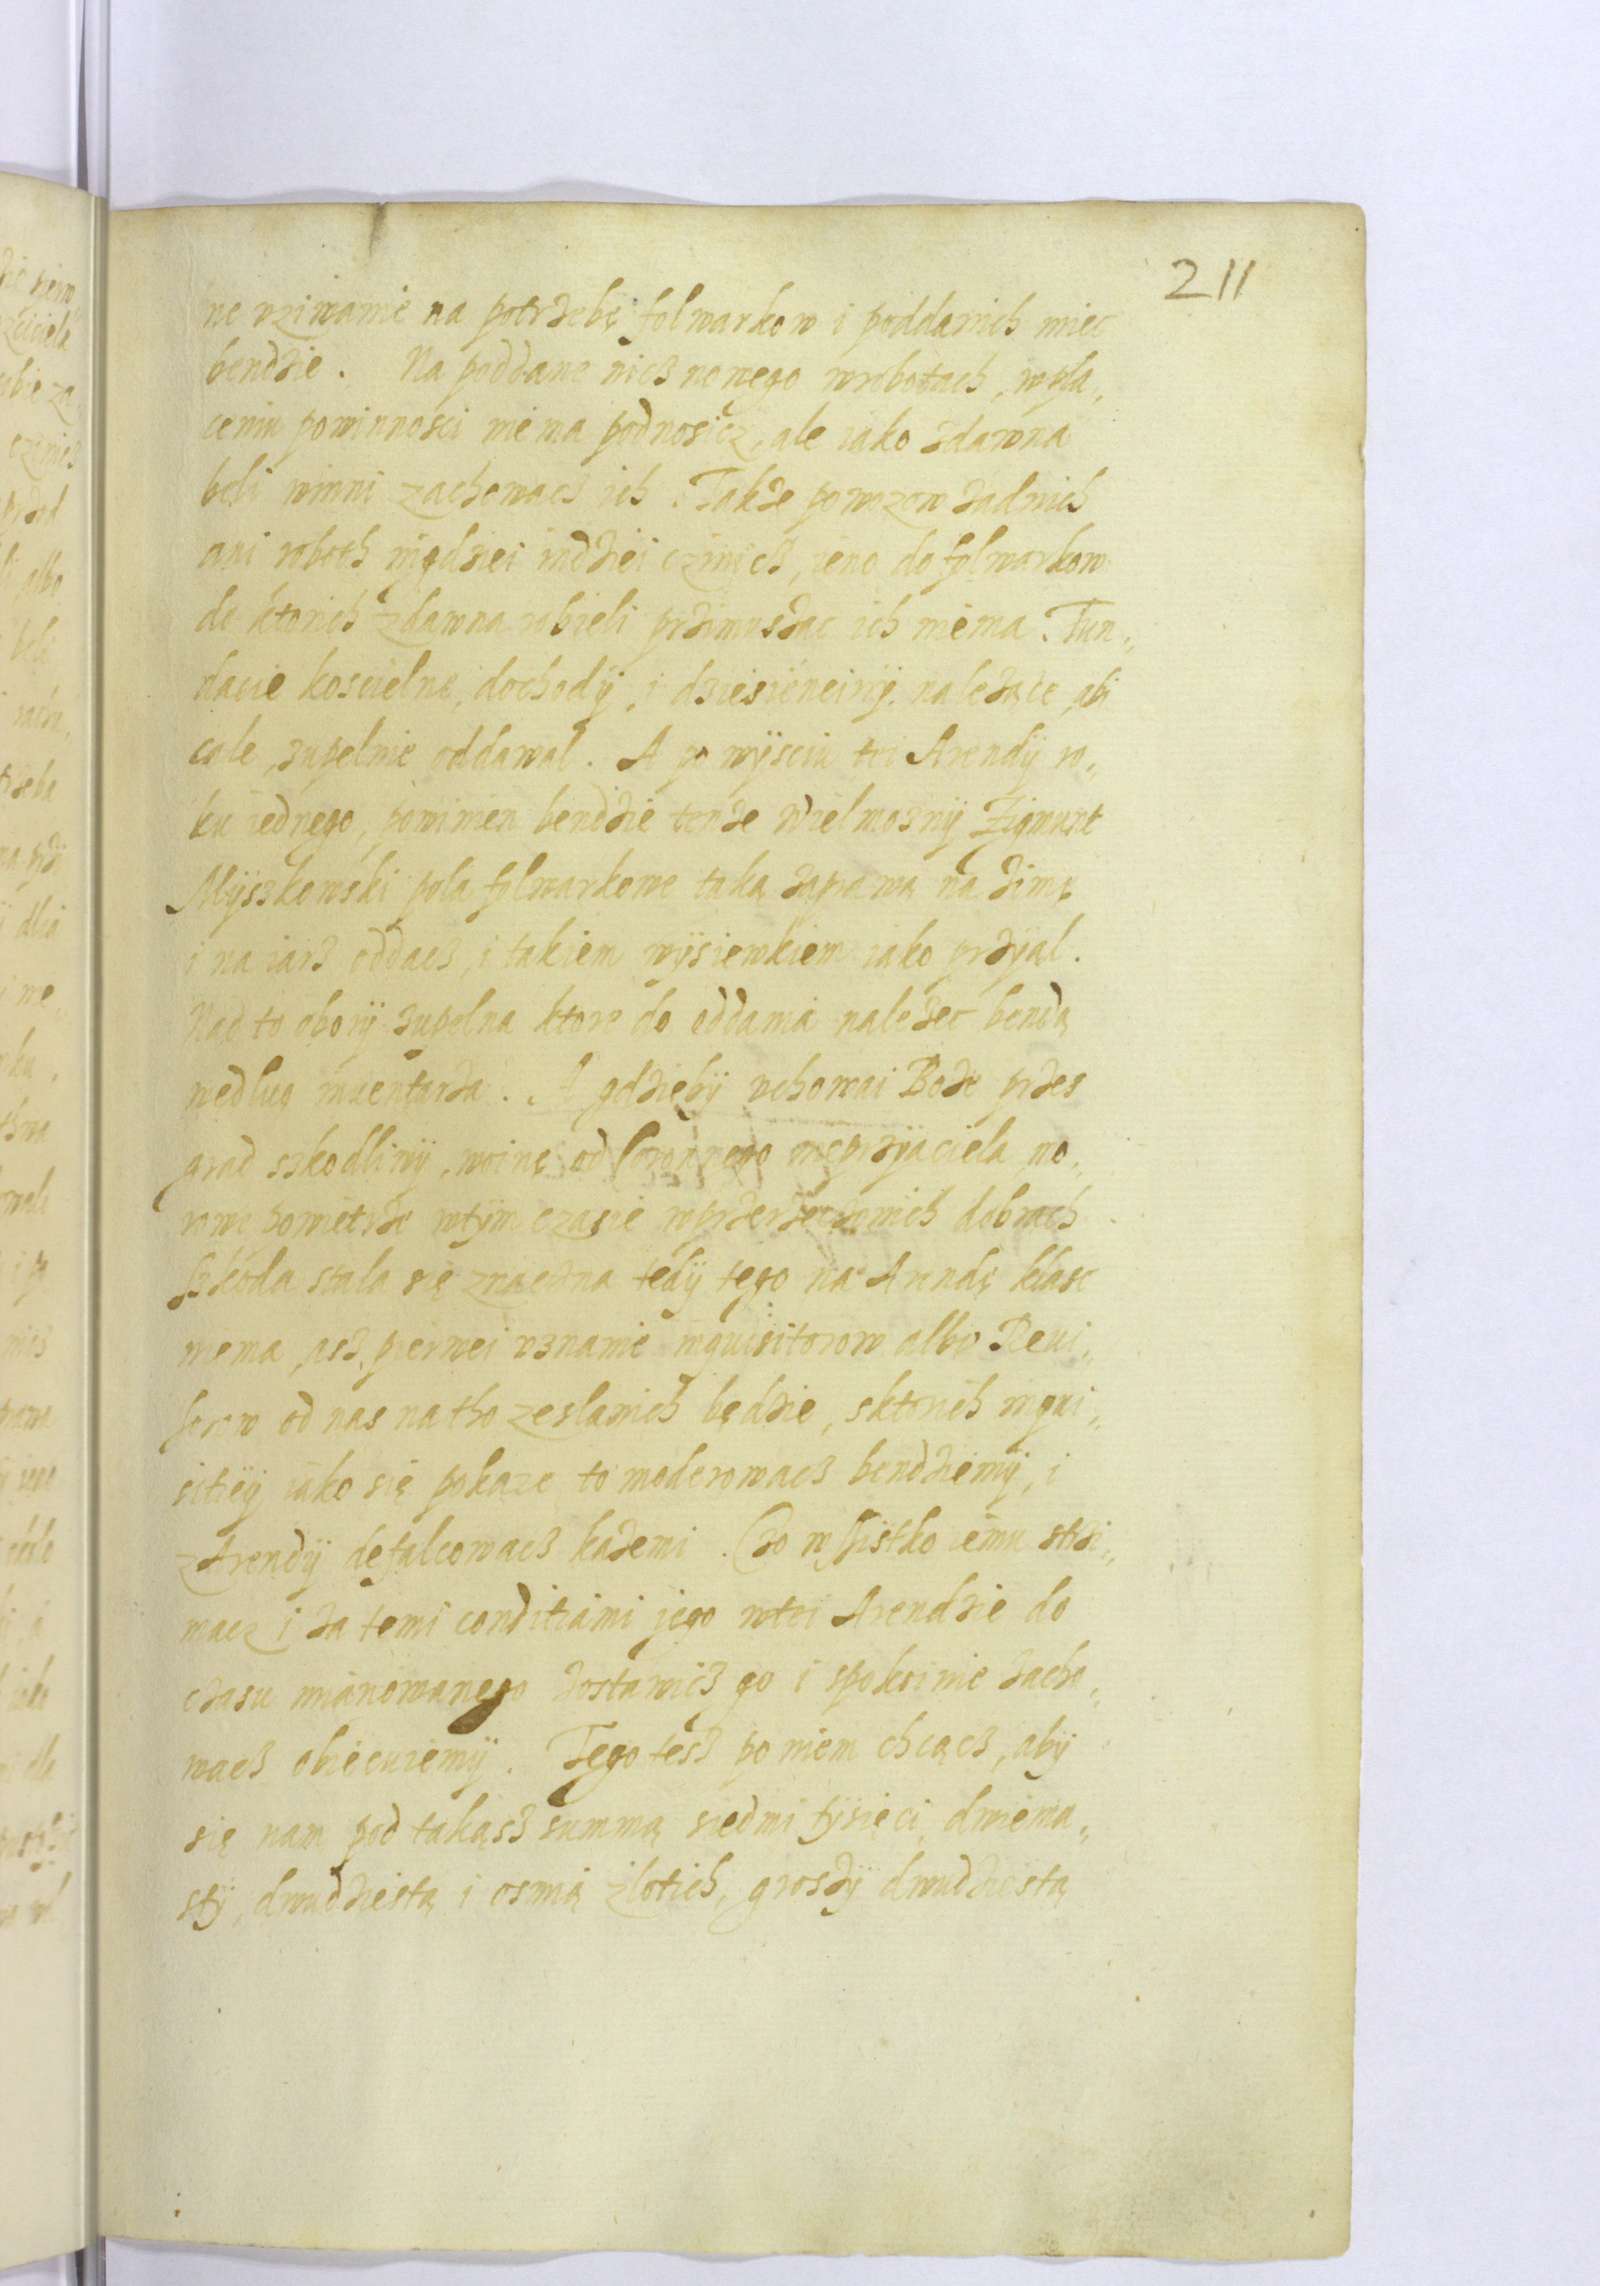 211
ne vziwanie na potrzebę folwarkow i poddanich miec
bendzie. Na poddane nicz nowego wrobotach, wpla„
ceniu powinnosci niema podnosicz, ale iako zdawna
beli winni zachowacz ich. Takze powozow zadnich
ani roboth nigdziei indziei czinicz, ieno do folwarkow
do ktorich zdawna robieli przimuszac ich niema. Fun„
dacie koscielne, dochody, i dziesiencinÿ nalezące, abi
cale, zupelnie oddawal. A po wÿsciu tei Arendÿ ro„
ku iednego, powinien bendzie tenze Wielmoznÿ Zigmunt
Mÿszkowski pola folwarkowe taką zaprawą na zimę
i na iarz oddacz, i takiem wÿsiewkiem iako przÿąl.
Nad to oborÿ zupelna ktore do oddania nalezec bendą
wedlug inuentarza. A gdziebÿ vchowai Boze przes
grad szkodliwÿ, woinę od Coronnego nieprzÿiaciela, mo„
rowe powietrze wtÿm czasie wprzerzeczonich dobrach
szkoda stala się znaczna tedÿ tego na Arendę klasc
niema, asz pierwei vznanie inquisitorow albo Reui„
sorow od nas na tho zeslanich będzie, s ktorich inqui„
sitiÿ iako się pokaze to moderowacz bendziemÿ, i
z Arendÿ defalcowacz kazemi. Czo wszistko iemu strzi„
macz i za temi conditiami jego wtei Arendzie do
czasu mianowanego zostawicz go i spokoinie zacho„
wacz obiecuiemÿ. Tego tesz po niem chcącz, abÿ
się nam pod takąsz summą siedmi tÿsięci, dwiema„
stÿ, dwudziestą i osmią zlotich, groszÿ dwudziestą